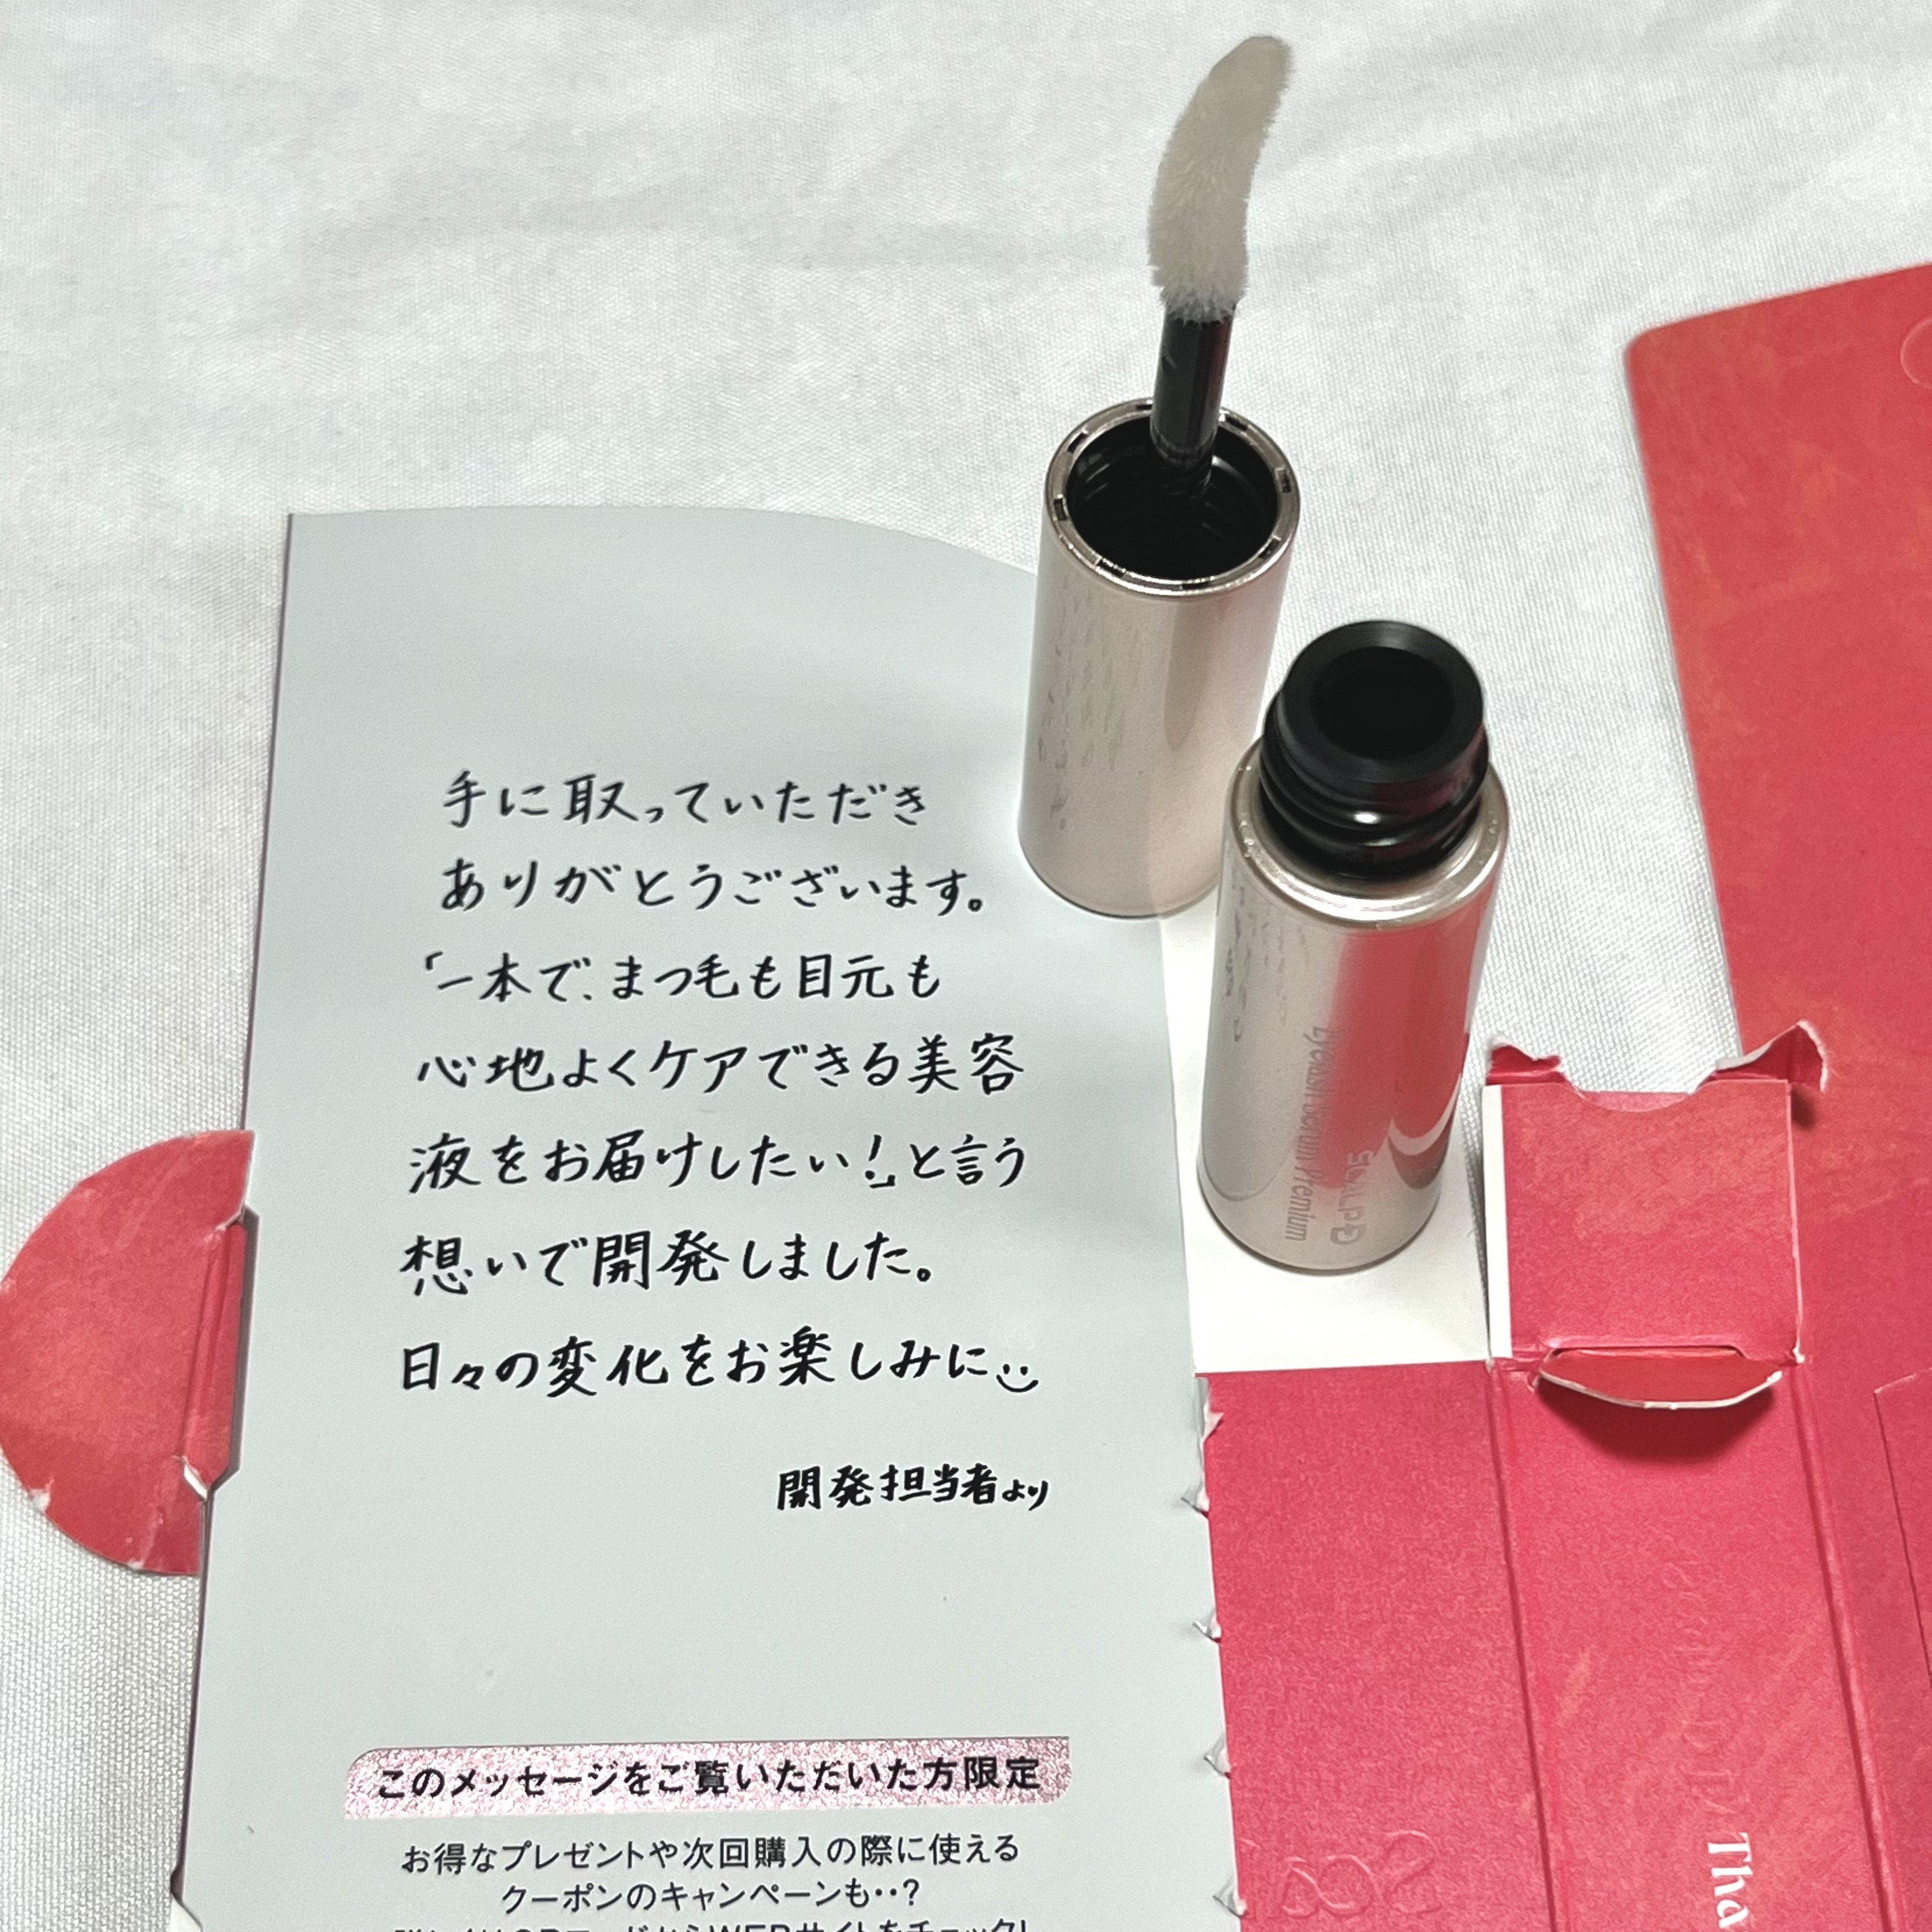 手に取っていただき
ありがとうございます。
「一本で、まつ毛も目元も
心地よくケアできる美容
液をお届けしたい!」と言う
想いで開発しました。
日々の変化をお楽しみに
開発担当者より
このメッセージをご覧いただいた方限定
お得なプレゼントや次回購入の際に使える
クーポンのキャンペーンも‥?
SCALP-D
Eyelash Serum Premium
Tha